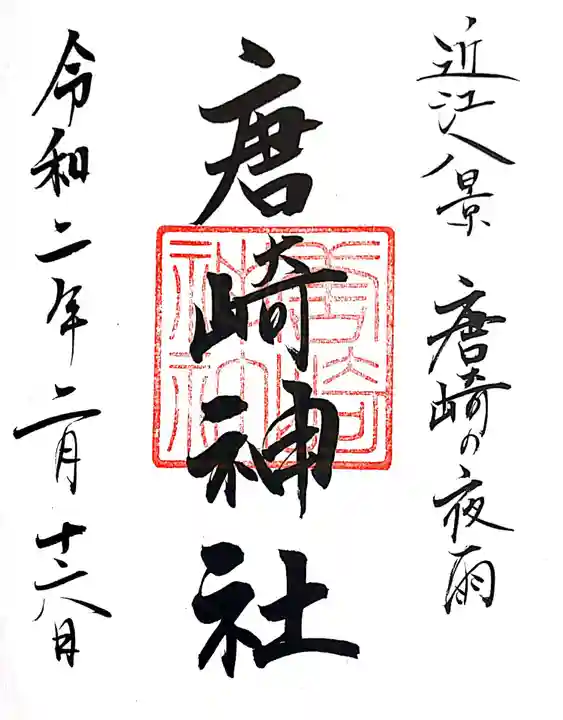 近江八景 唐崎の夜雨
唐崎神社
令和二年二月十六日